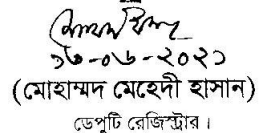 ১৩-০৬-২০২১
(মোহাম্মদ মেহেদী হাসান)
ডেপুটি রেজিস্ট্রার।